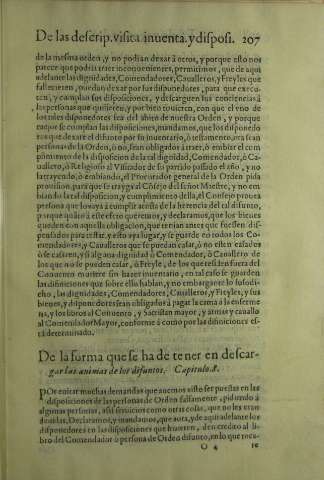 De las descrip. visita inuenta. y disposi. 207
de la mesma orden, y no podian dexar à otros, y porque esto nos
parece que podria traer inconuenientes, permitimos, que de aqui
adelante las dignidades, Comendadores, Caualleros, y Freyles que
fallecieren, puedan dexar por sus disponedores, para que execu-
ten, y cumplan sus disposiciones, y descarguen sus conciencias à
las personas que quisieren, y por bien touieren, con que el vno de
los tales disponedores sea del abito de nuestra Orden, y porque
mejor se cumplan las disposiciones, mandamos, que los disponedo
res que dexare el difunto por su inuentario, ò testamento, no sean
personas de la Orden, ò no, sean obligados à traer, ò embiar el cum
plimiento de la disposicion de la tal dignidad, Comendador, ò Ca-
uallero, ò Religioso al Visitador de su partido passado el año, y no
la trayendo, ò embiando, el Procurador general de la Orden pida
prouision, para que se trayga al Cõsejo del señor Maestre, y no em
biando la tal disposicion, y cumplimiento della, el Consejo prouea
persona que los vaya à cumplir à costa de la herencia del tal difunto,
para que
queden con aquella obligacion, que tenian antes que fuessen dis-
pensados para testar, y esto aya lugar, y se guarde en todos los Co-
mendadores, y Caualleros que se puedan casar, ò no esten casados
ò se casaren, y si alguna dignidad ò Comendador, ò Cauallero de
los que no se pueden casar, ò Freyle, de los que residen fuera del
Conuento muriere sin hazer inuentario, en tal caso se guarden
las difiniciones que sobre ello hablan, y no embargante lo susodi-
cho, las dignidades, Comendadores, Caualleros, y Freyles, y sus
bienes, y disponedores sean obligados à pagar la cama à la enferme
ria, y los libros al Conuento, y Sacristan mayor, y armas y cauallo
al Comendador Mayor, conforme à como por las difiniciones es-
tà determinado.
De la forma que se ha de tener en descar-
gar las animas de los difuntos. Capitulo 8.
POr euitar muchas demandas que auemos visto ser puestas en las
disposiciones de las personas de Orden falsamente, pidiendo à
algunas personas, assi seruicios como otras cosas, que no les eran
deuidas, Declaramos, y mandamos, que aora, y de aqui adelante los
disponedores, en las disposiciones que hizieren, den credito al li-
bro del Comendador ò persona de Orden difunto, en lo que toca-
O 4 re